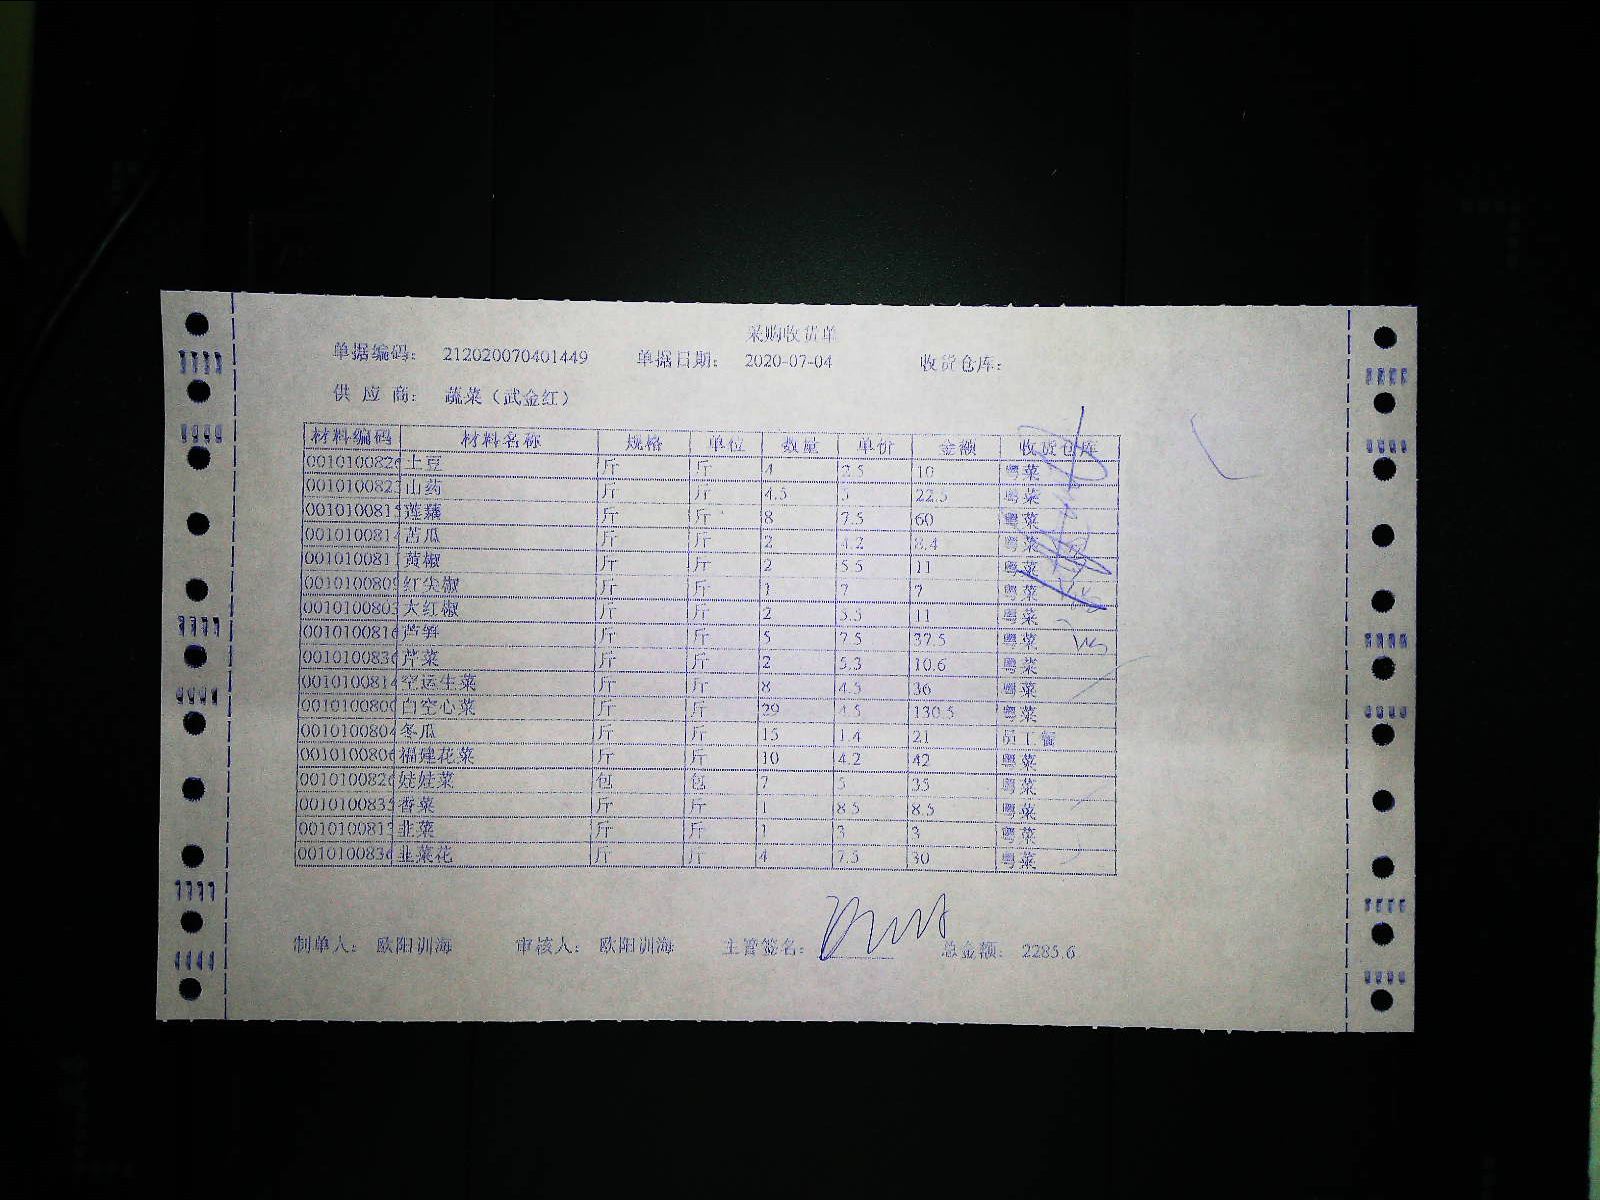 采购收货单
单据编码： 212020070401449 单据日期： 2020-07-04 收货仓库：
供 应 商： 蔬菜（武金红）
材料编码 材料名称 规格 单位 数量 单价 金额 收货仓库
001010082 土豆 斤 斤 4 2.5 10 粤菜
001010082 山药 斤 斤 4.5 5 22.5 粤菜
001010081 莲藕 斤 斤 8 7.5 60 粤菜
001010081 苦瓜 斤 斤 2 4.2 8.4 粤菜
001010081 黄椒 斤 斤 2 5.5 11 粤菜
001010080 红尖椒 斤 斤 1 7 7 粤菜
001010080 大红椒 斤 斤 2 5.5 11 粤菜
001010081 芦笋 斤 斤 5 7.5 37.5 粤菜
001010083 芹菜 斤 斤 2 5.3 10.6 粤菜
001010081 空运生菜 斤 斤 8 4.5 36 粤菜
001010080 白空心菜 斤 斤 29 4.5 130.5 粤菜
001010080 冬瓜 斤 斤 15 1.4 21 员工餐
001010080 福建花菜 斤 斤 10 4.2 42 粤菜
001010082 娃娃菜 包 包 7 5 35 粤菜
001010083 香菜 斤 斤 1 8.5 8.5 粤菜
001010081 韭菜 斤 斤 1 3 3 粤菜
001010083 韭菜花 斤 斤 4 7.5 30 粤菜
制单人： 欧阳训海 审核人： 欧阳训海 主管签名： 总金额： 2285.6